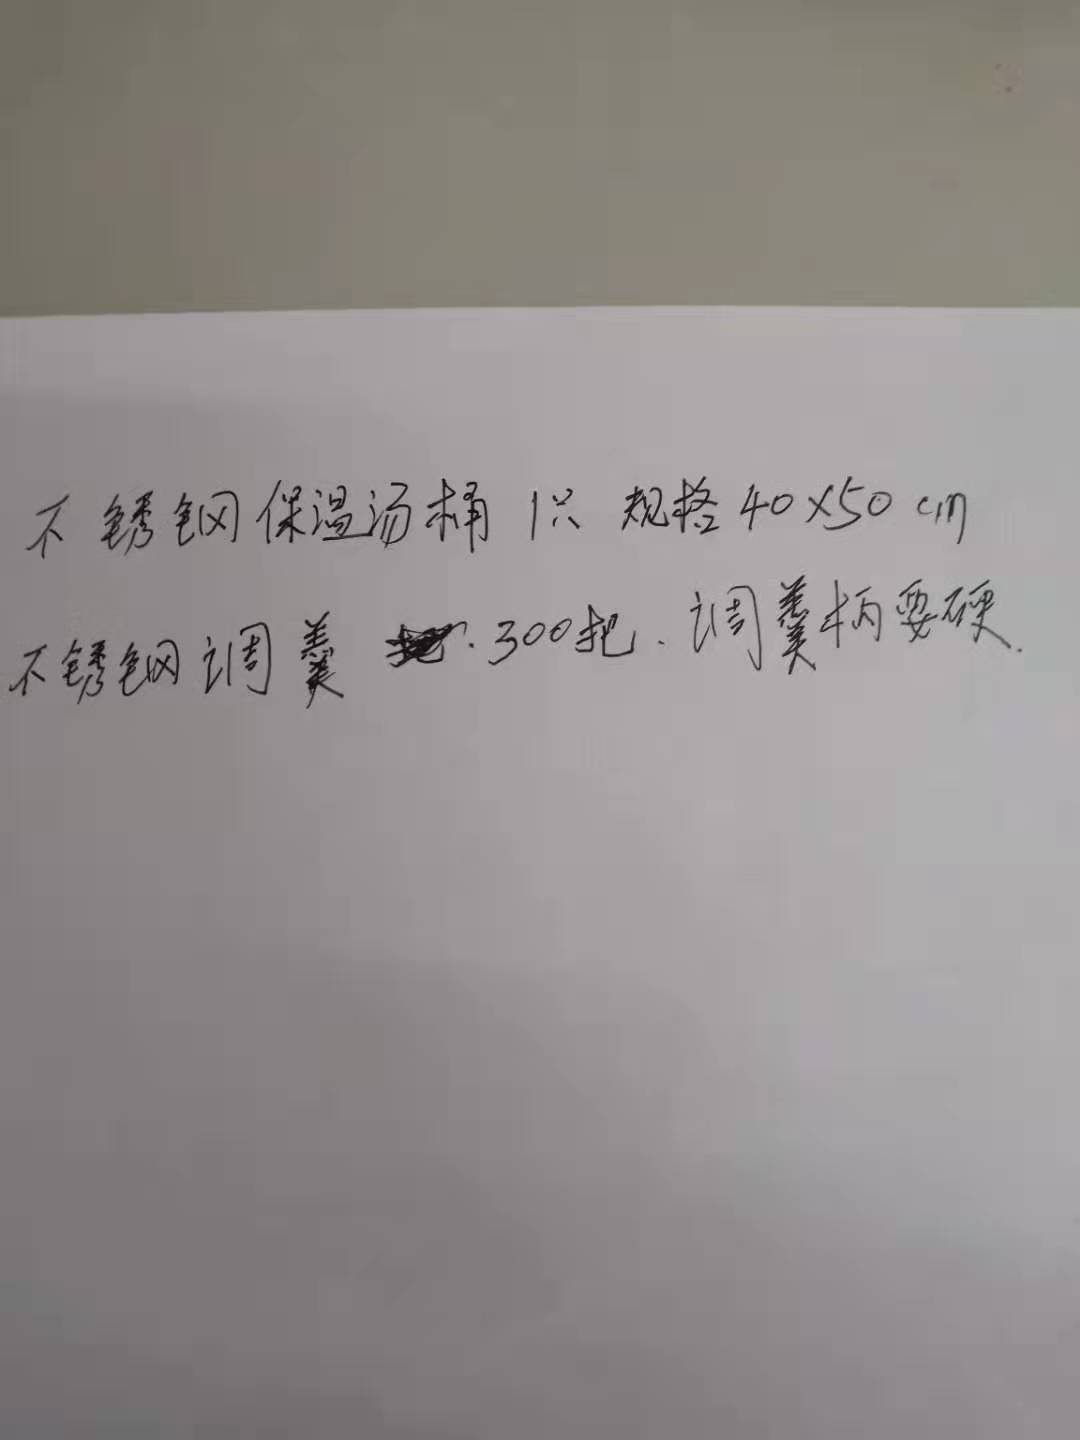 不锈钢保温汤桶 1只 规格40×50cm
不锈钢调羹 .300把.调羹柄要硬.